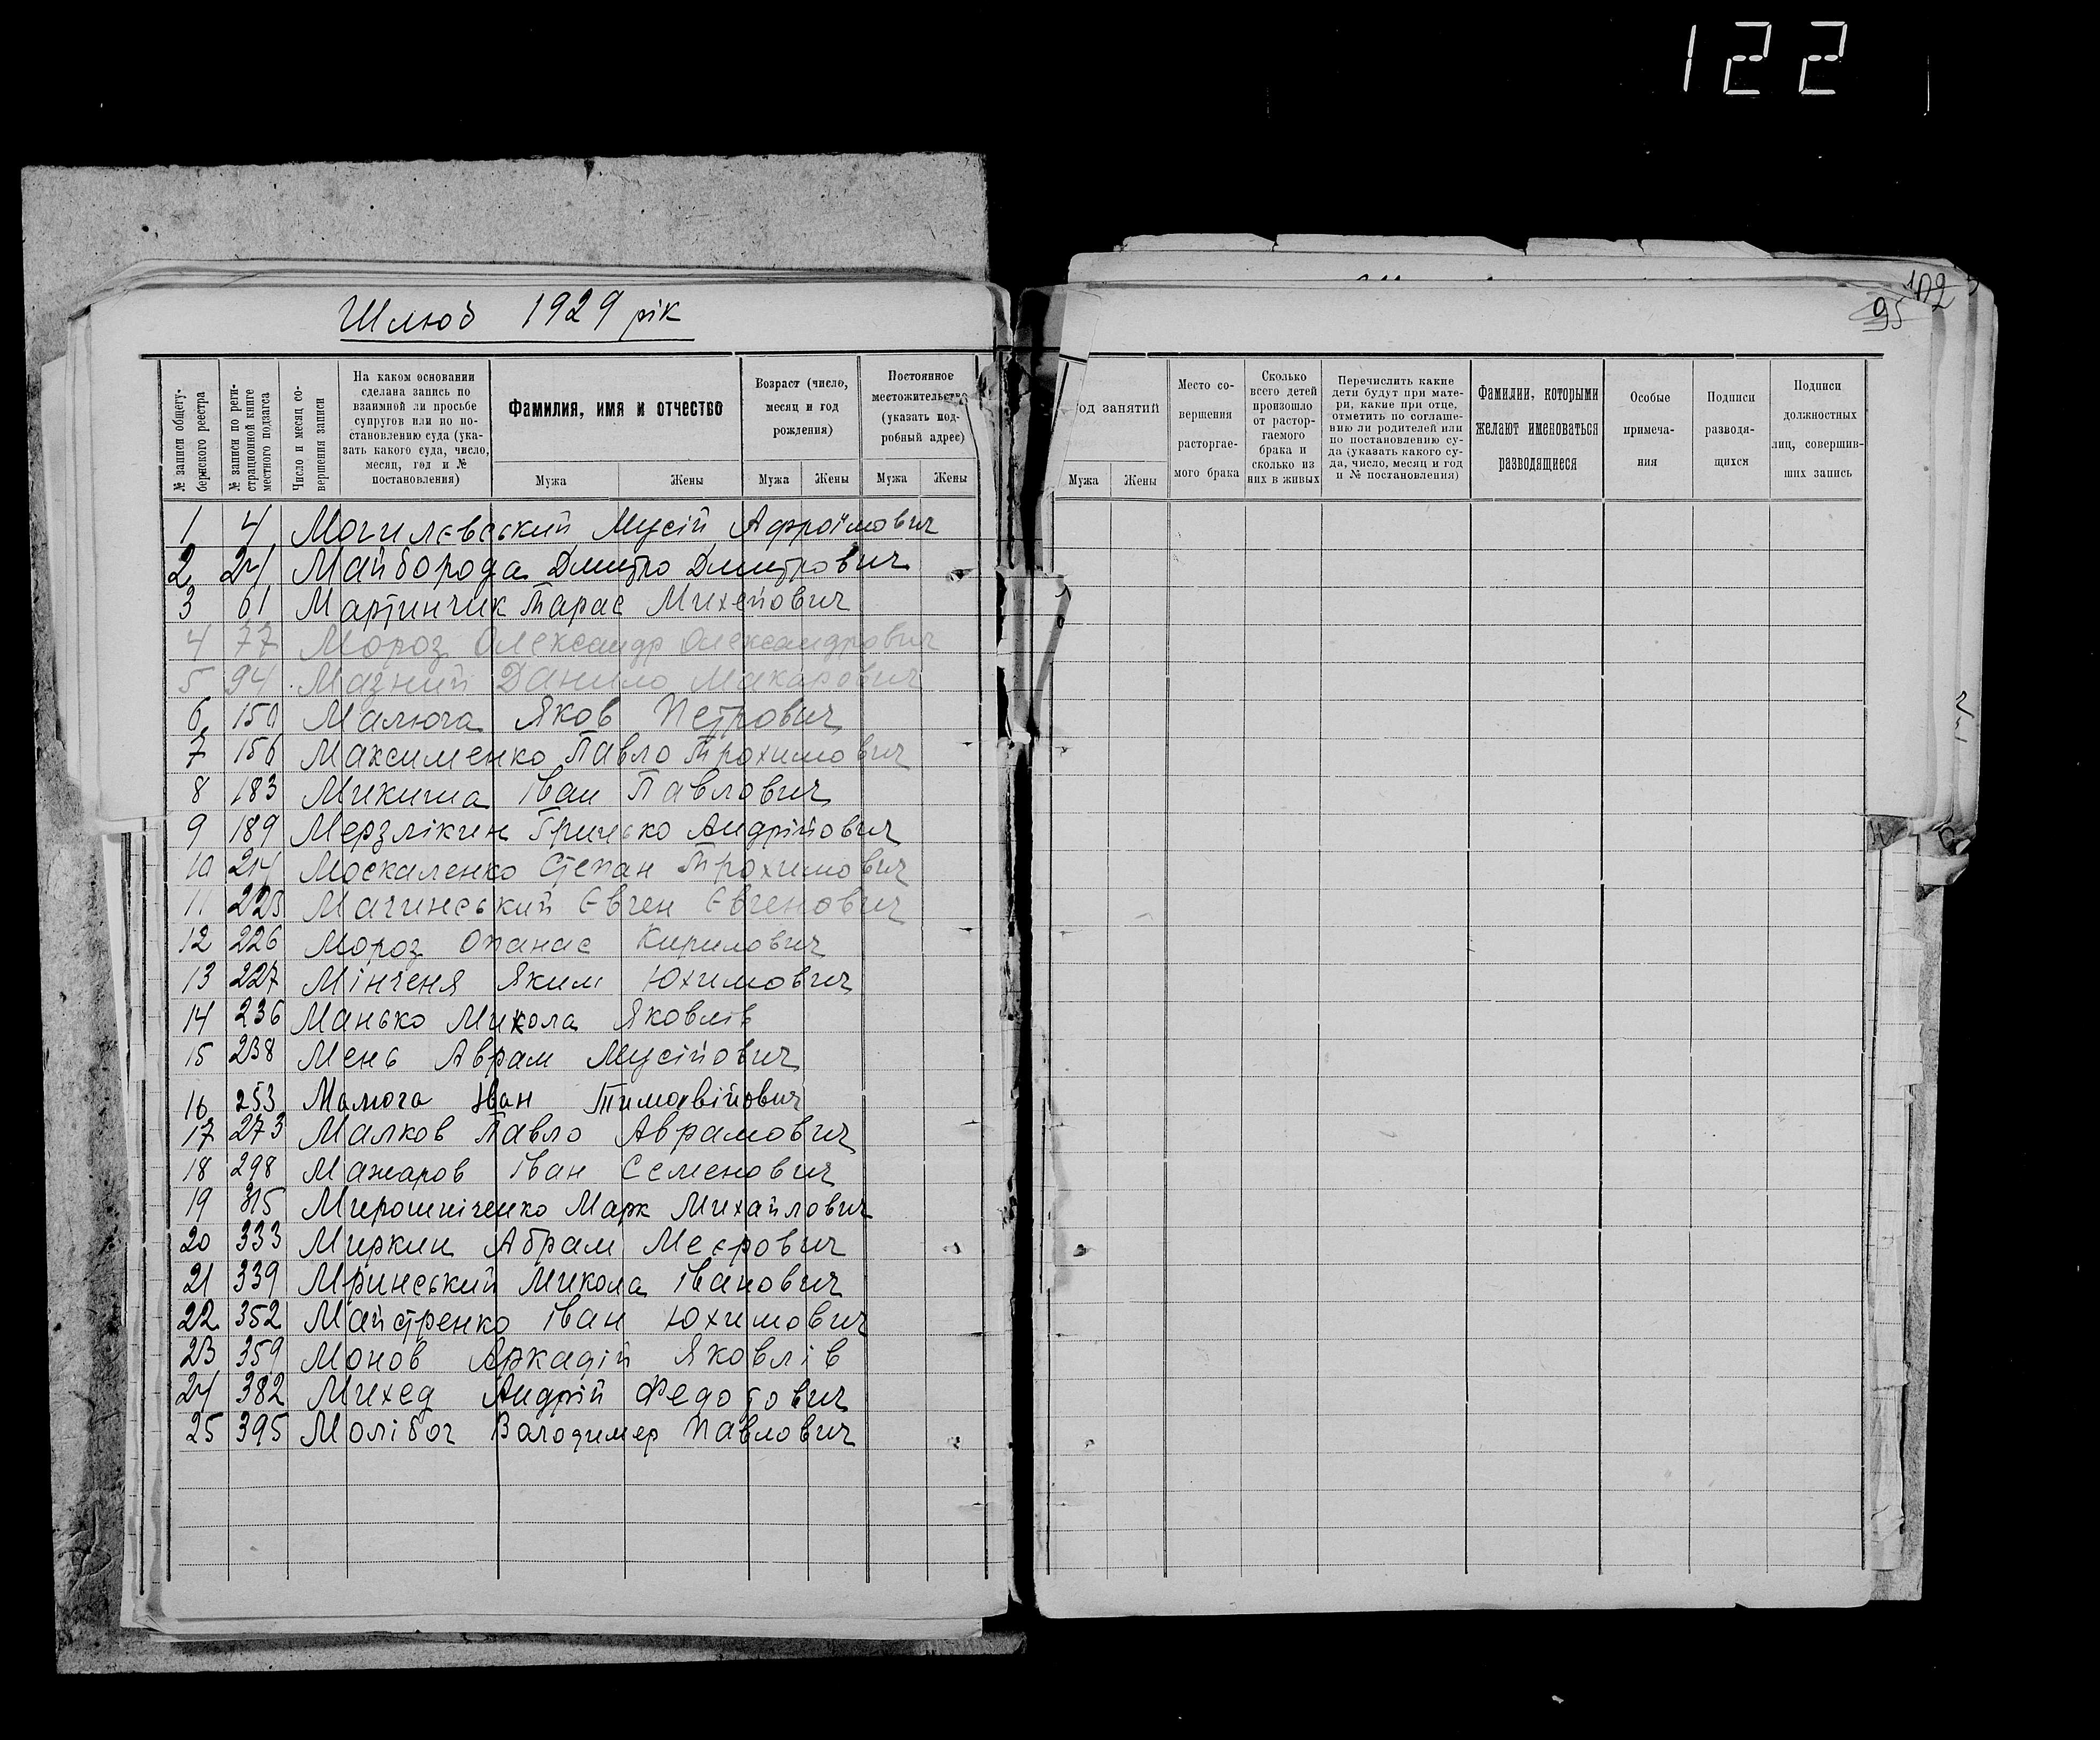 122
Шлюб 1929 рік
102
95
№ записи общегубернского реестра
№ записи по регистрационной книге местного подзагса
Число и месяц совершения записи
На каком основании сделана запись по взаимной ли просьбе супругов или по постановлению суда (указать какого суда, число, месяц, год и № постановления)
Фамилия, имя и отчество
Мужа Жены
Возраст (число, месяц и год рождения)
Мужа Жены
Постоянное местожительство (указать подробный адрес)
Мужа Жены
од занятий
Мужа Жены
Место совершения расторгаемого брака
Сколько всего детей произошло от расторгаемого брака и сколько из них в живых
Перечислить какие дети будут при матери, какие при отце, отметить по соглашению ли родителей или по постановлению суда (указать какого суда, число, месяц и год и № постановления)
Фамилии, которыми желают именоваться разводящиеся
Особые примечания
Подписи разводящихся
Подписи должностных лиц, совершивших запись
1 4 Могилєвський Мусій Афроїмович
2 24 Майборода Дмитро Дмитрович
3 61 Мартинчик Тарас Михейович
4 77 Мороз Олександр Олександрович
5 94 Мазний Данило Макарович
6 150 Малюга Яков Петрович
7 156 Максименко Павло Трохимович
8 183 Микита Іван Павлович
9 189 Мерзлікин Грицько Андрійович
10 214 Москаленко Степан Трохимович
11 223 Мачинський Євген Євгенович
12 226 Мороз Опанас Кирилович
13 227 Мінченя Яким Юхимович
14 236 Манько Микола Яковлів
15 238 Мень Аврам Мусійович
16 253 Малюга Іван Тимофвійович
17 273 Малков Павло Аврамович
18 298 Мажаров Іван Семенович
19 315 Мирошніченко Марк Михайлович
20 333 Миркин Абрам Меєрович
21 339 Мринський Микола Іванович
22 352 Майстренко Іван Юхимович
23 359 Монов Аркадій Яковлів
24 382 Михед Андрій Федотович
25 395 Молібог Володимер Павлович